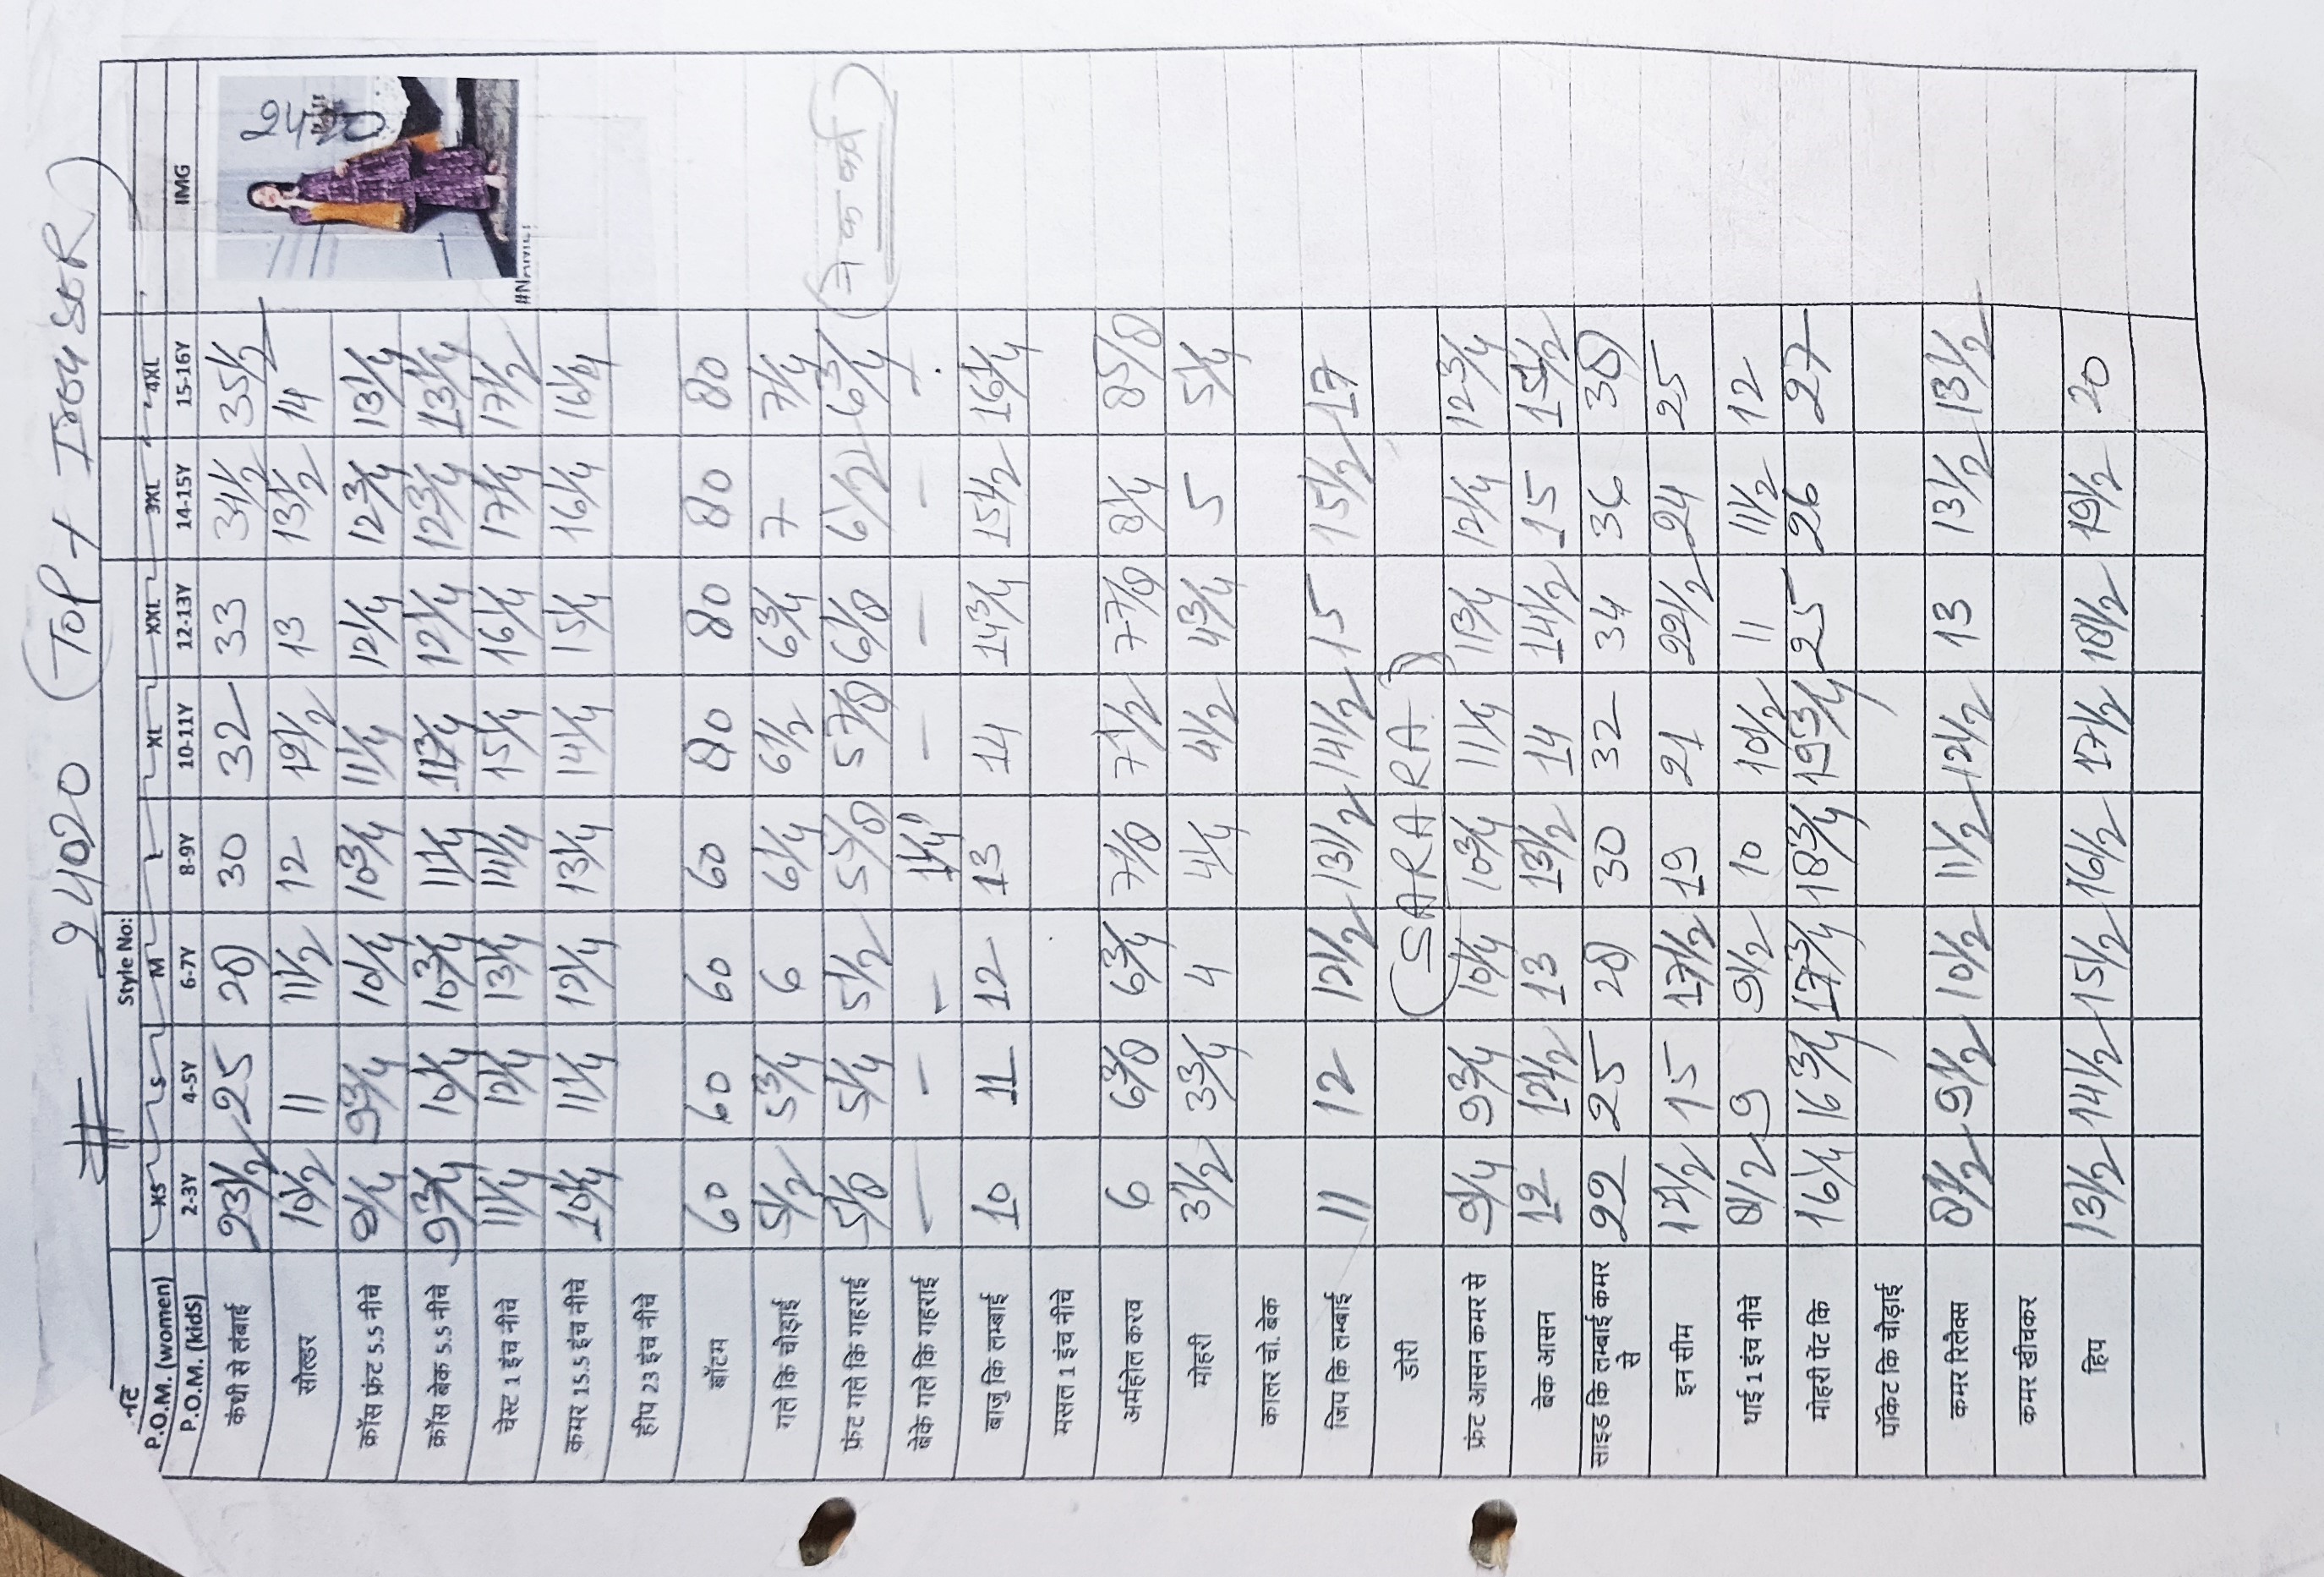 # 24020 (TOP + Trouser)
Style No:
P.O.M. (women) XS S M L XL XXL 3XL 4XL
P.O.M. (kidS) 2-3Y 4-5Y 6-7Y 8-9Y 10-11Y 12-13Y 14-15Y 15-16Y IMG
कंधी से लंबाई 23 1/2 25 28 30 32 33 34 1/2 35 1/2
सोल्डर 10 1/2 11 11 1/2 12 12 1/2 13 13 1/2 14
क्रॉस फ्रंट 5.5 नीचे 9 1/4 9 3/4 10 1/4 10 3/4 11 1/4 12 1/4 12 3/4 13 1/4
क्रॉस बेक 5.5 नीचे 9 3/4 10 1/4 10 3/4 11 1/4 11 3/4 12 1/4 12 3/4 13 1/4
चेस्ट 1 इंच नीचे 11 1/4 12 1/4 13 1/4 14 1/4 15 1/4 16 1/4 17 1/4 17 1/2
कमर 15.5 इंच नीचे 10 1/4 11 1/4 12 1/4 13 1/4 14 1/4 15 1/4 16 1/4 16 1/4
हीप 23 इंच नीचे
बॉटम 60 60 60 60 80 80 80 80
गले कि चौड़ाई 5 1/2 5 3/4 6 6 1/4 6 1/2 6 3/4 7 7 1/4
फ्रंट गले कि गहराई 5 1/8 5 1/4 5 1/2 5 5/8 5 7/8 6 1/8 6 1/2 6 3/4
बेके गले कि गहराई - - - 1 1/4" - - - -
बाजु कि लम्बाई 10 11 12 13 14 14 3/4 15 1/2 16 1/4
मसल 1 इंच नीचे
अर्महोल करव 6 6 3/8 6 3/4 7 1/8 7 1/2 7 7/8 8 1/4 8 5/8
मोहरी 3 1/2 3 3/4 4 4 1/4 4 1/2 4 3/4 5 5 1/4
कालर चो. बेक
जिप कि लम्बाई 11 12 12 1/2 13 1/2 14 1/2 15 15 1/2 17
डोरी (SARARA)
फ्रंट आसन कमर से 9 1/4 9 3/4 10 1/4 10 3/4 11 1/4 11 3/4 12 1/4 12 3/4
बेक आसन 12 12 1/2 13 13 1/2 14 14 1/2 15 15 1/2
साइड कि लम्बाई कमर से 22 25 28 30 32 34 36 38
इन सीम 12 1/2 15 17 1/2 19 21 22 1/2 24 25
थाई 1 इंच नीचे 8 1/2 9 9 1/2 10 10 1/2 11 11 1/2 12
मोहरी पेंट कि 16 1/4 16 3/4 17 3/4 18 3/4 19 3/4 25 26 27
पॉकेट कि चौड़ाई
कमर रिलैक्स 8 1/2 9 1/2 10 1/2 11 1/2 12 1/2 13 13 1/2 13 1/2
कमर खीचकर
हिप 13 1/2 14 1/2 15 1/2 16 1/2 17 1/2 18 1/2 19 1/2 20